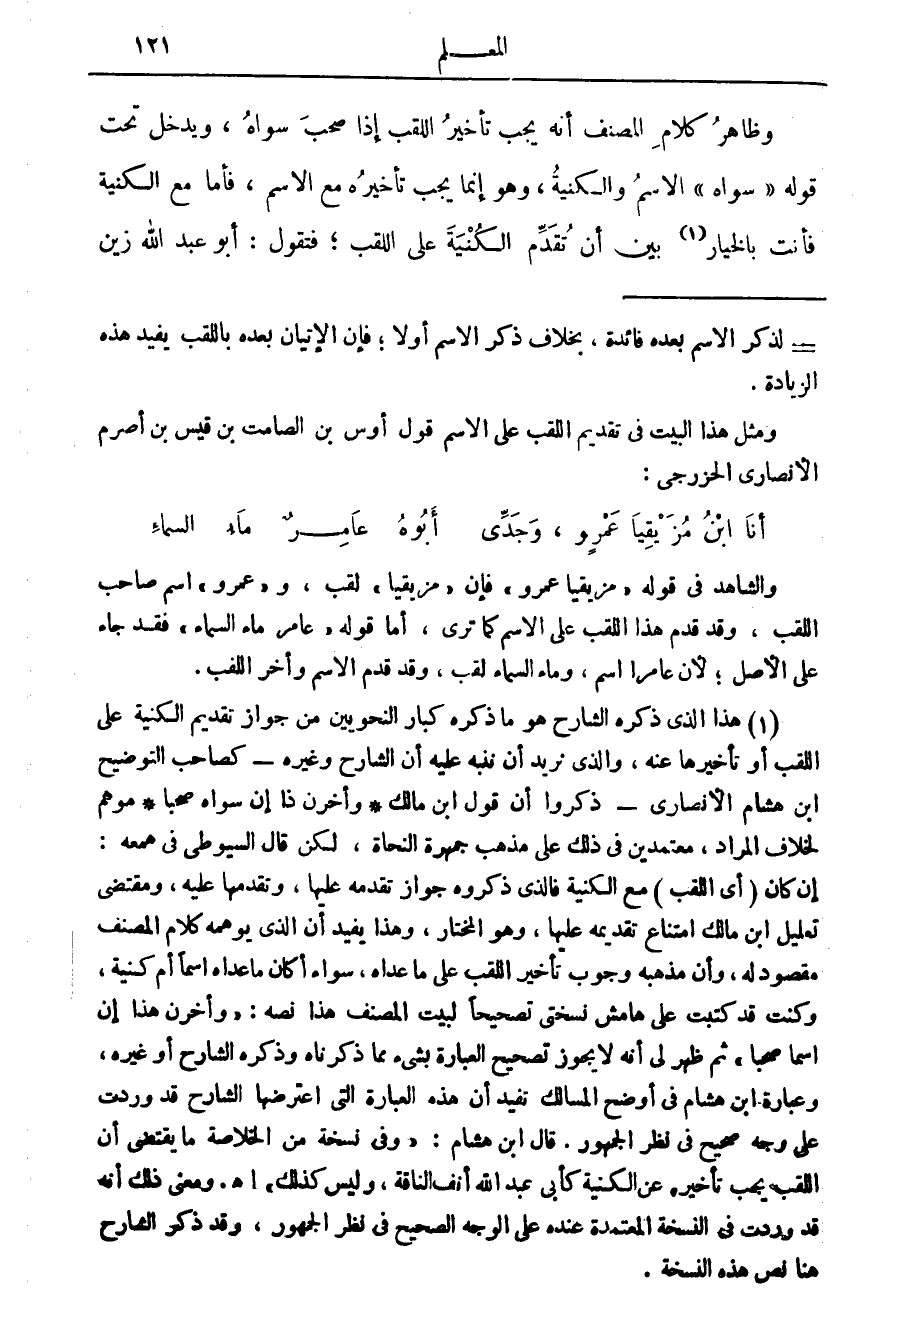 العلم ١٢١
وظاهرُ كلامِ المصنف أنه يجب تأخيرُ اللقب إذا صحبَ سواهُ ، ويدخل تحت
قوله « سواه » الاسمُ والكنيةُ ، وهو إنما يجب تأخيرُه مع الاسم ، فأما مع الكنية
فأنت بالخيار(١) بين أن تُقَدِّم الكُنْيَةَ على اللقب ؛ فتقول : أبو عبد الله زين
= لذكر الاسم بعده فائدة ، بخلاف ذكر الاسم أولا ؛ فإن الإتيان بعده باللقب يفيد هذه
الزيادة .
ومثل هذا البيت فى تقديم اللقب على الاسم قول أوس بن الصامت بن قيس بن أصرم
الأنصارى الخزرجى :
أنَا ابْنُ مُزَيْقِيَا عَمْرٍو ، وَجَدِّى أَبُوهُ عَامِرٌ مَاءِ السماءِ
والشاهد فى قوله « مزيقيا عمرو » فإن « مزيقيا » لقب ، و « عمرو » اسم صاحب
اللقب ، وقد قدم هذا اللقب على الاسم كما ترى ، أما قوله « عامر ماء السماء » فقد جاء
على الأصل ؛ لأن عامرا اسم ، وماء السماء لقب ، وقد قدم الاسم وأخر اللقب .
(١) هذا الذى ذكره الشارح هو ما ذكره كبار النحويين من جواز تقديم الكنية على
اللقب أو تأخيرها عنه ، والذى نريد أن ننبه عليه أن الشارح وغيره — كصاحب التوضيح
ابن هشام الأنصارى — ذكروا أن قول ابن مالك * وأخرن ذا إن سواه صحبا * موهم
لخلاف المراد ، معتمدين فى ذلك على مذهب جمهرة النحاة ، لكن قال السيوطى فى همعه :
إن كان ( أى اللقب ) مع الكنية فالذى ذكروه جواز تقدمه عليها ، وتقدمها عليه ، ومقتضى
تعليل ابن مالك امتناع تقديمه عليها ، وهو المختار ، وهذا يفيد أن الذى يوهمه كلام المصنف
مقصود له ، وأن مذهبه وجوب تأخير اللقب على ما عداه ، سواء أكان ماعداه اسماً أم كنية ،
وكنت قد كتبت على هامش نسختى تصحيحاً لبيت المصنف هذا نصه : « وأخرن هذا إن
اسما صحبا » ثم ظهر لى أنه لا يجوز تصحيح العبارة بشىء مما ذكرناه وذكره الشارح أو غيره ،
وعبارة ابن هشام فى أوضح المسالك تفيد أن هذه العبارة التى اعترضها الشارح قد وردت
على وجه صحيح فى نظر الجمهور . قال ابن هشام : « وفى نسخة من الخلاصة ما يقتضى أن
اللقب يجب تأخيره عن الكنية كأبى عبد الله أنف الناقة ، وليس كذلك » ا ه . ومعنى ذلك أنه
قد وردت فى النسخة المعتمدة عنده على الوجه الصحيح فى نظر الجمهور ، وقد ذكر الشارح
هنا نص هذه النسخة .